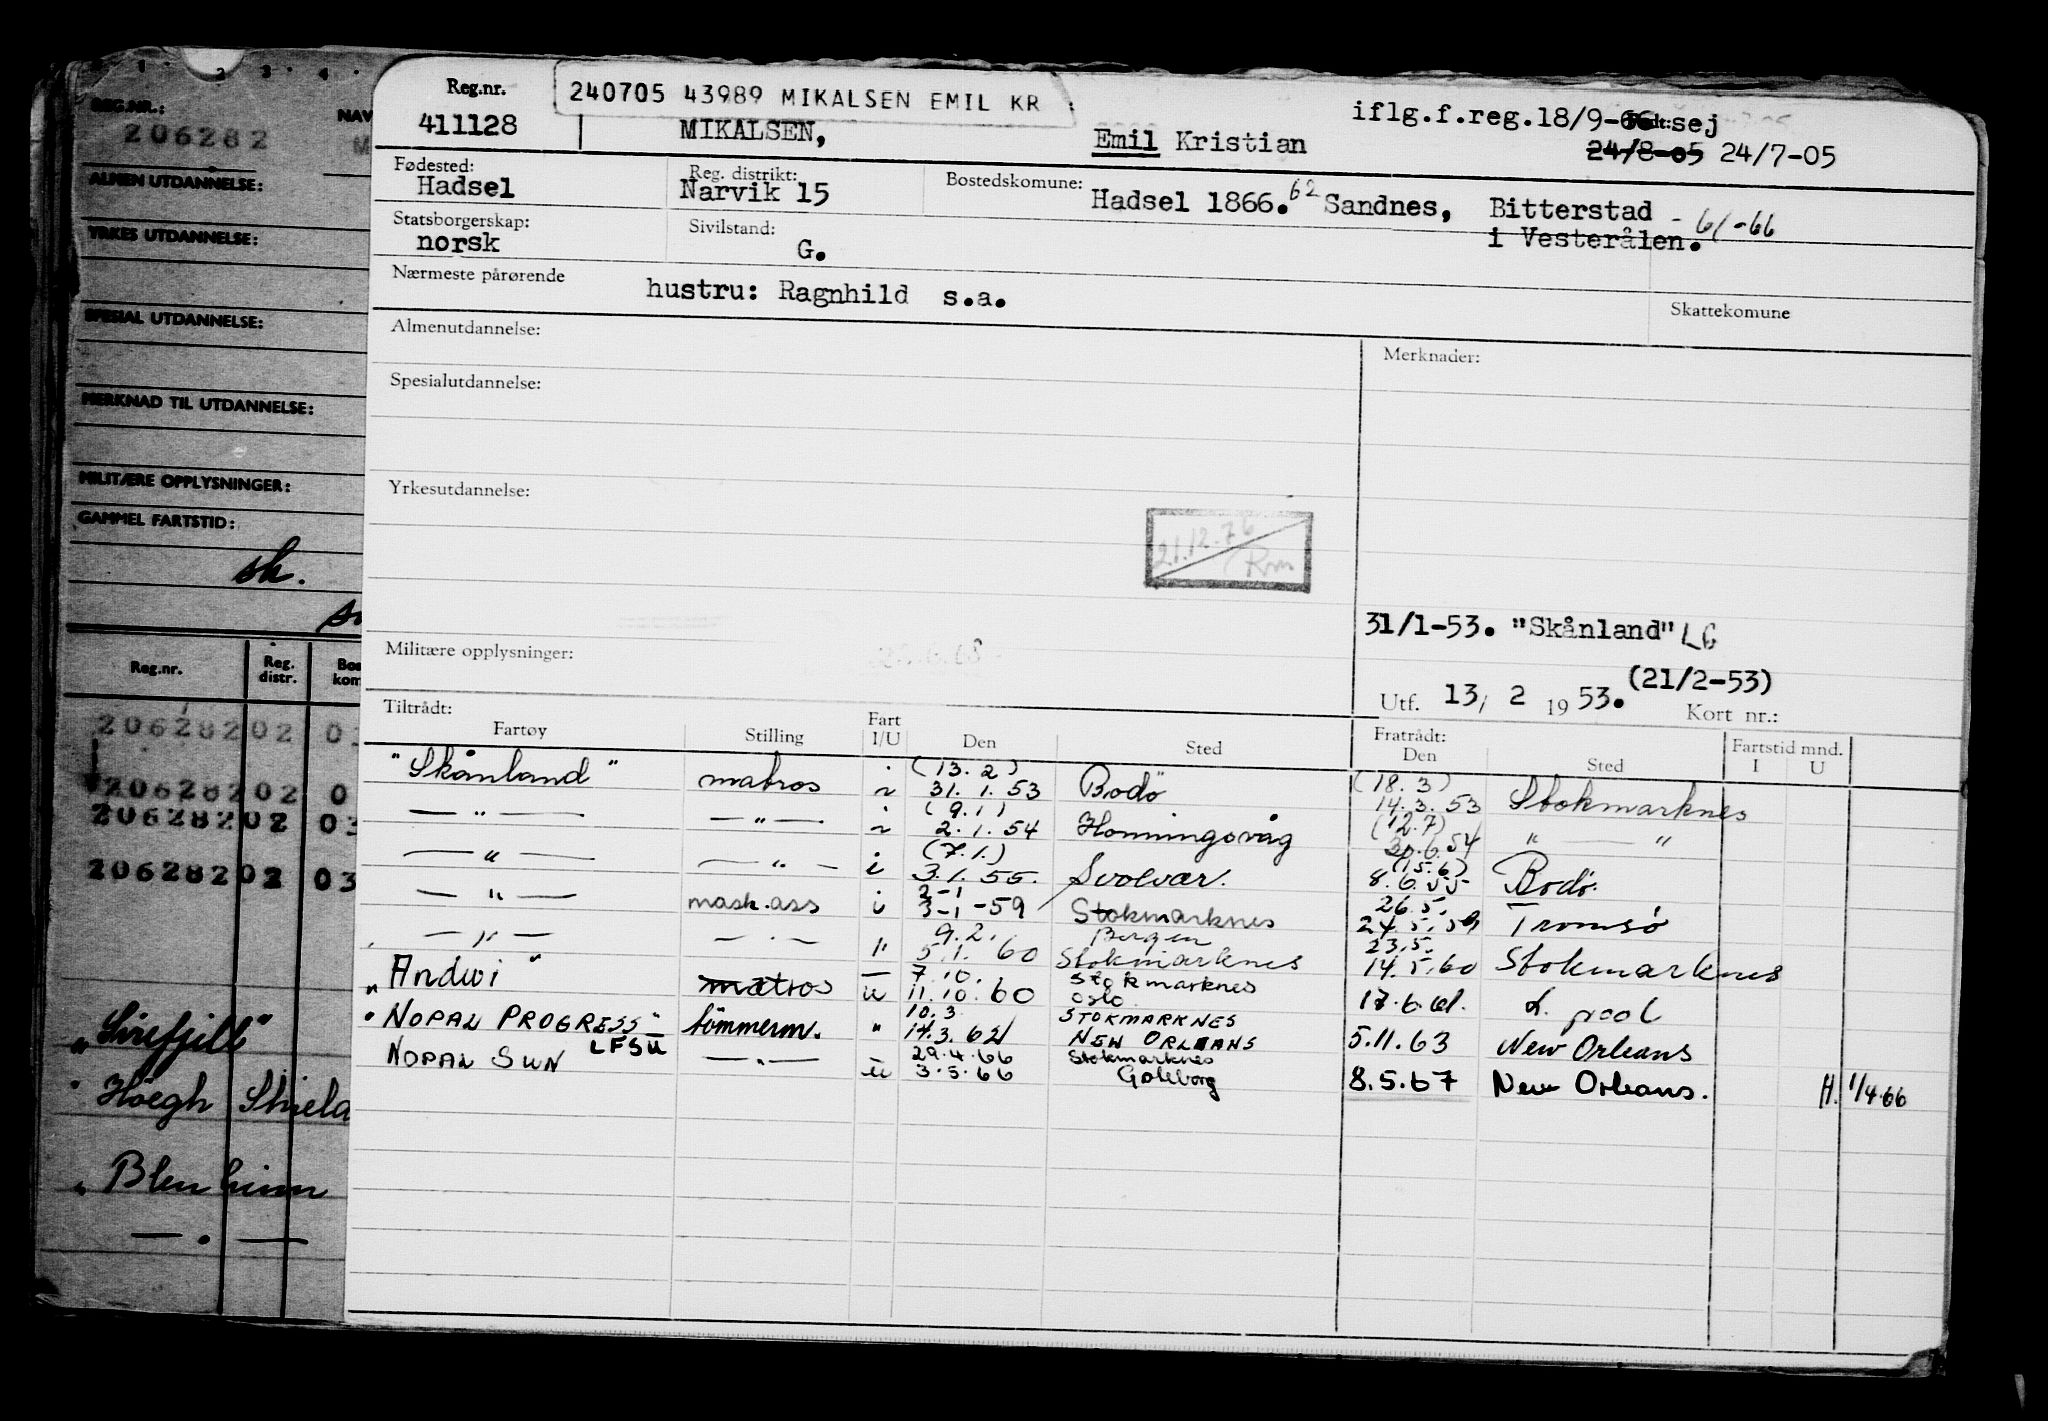 Reg.nr. 240705 43989 MIKALSEN EMIL KR
411128 MIKALSEN, Emil Kristian iflg.f.reg.18/9-66 sej
24/8-05 24/7-05
Fødested: Reg. distrikt: Bostedskomune:
Hadsel Narvik 15 Hadsel 1866. 62 Sandnes, Bitterstad - 61-66
i Vesterålen.
Statsborgerskap: Sivilstand:
norsk G.
Nærmeste pårørende hustru: Ragnhild s.a.
Skattekomune
Almenutdannelse: Merknader:
Spesialutdannelse:
Yrkesutdannelse:
21.12.76
31/1-53. "Skånland" LG
Militære opplysninger:
(21/2-53)
Utf. 13/ 2 1953. Kort nr.:
Tiltrådt: Fratrådt: Fartstid mnd.
Fartøy Stilling Fart I/U Den Sted Den Sted I U
(13.2) (18.3)
"Skånland" matros 31.1.53 Bodø 14.3.53 Stokmarknes
(9.1) (12.7)
— " — — " — 2.1.54 Honningsvåg 30.6.54 " — "
(7.1.) (15.6)
— " — — " — i 3.1.55. Svolvær. 8.6.55 Bodø.
2-1 26.5.
— " — mask.ass i 3-1-59 Stokmarknes 24.5.59 Tromsø
9.2. Bergen 23.5.
— " — — " — " 5.1.60 Stokmarknes 14.5.60 Stokmarknes
7.10. Stokmarknes
"Andwi" matros u 11.10.60 Oslo. 17.6.61. L.pool
10.3 STOKMARKNES
"NOPAL PROGRESS" tømmerm. " 14.3.62 NEW ORLEANS 5.11.63 New Orleans
LFSU
29.4.66 Stokmarknes
NOPAL SUN — " — u 3.5.66 Gøteborg 8.5.67 New Orleans. H. 1/4.66
1 2 3 4
REG.NR.: NAV
206282 M
ALMEN UTDANNELSE:
YRKES UTDANNELSE:
SPESIAL UTDANNELSE:
MERKNAD TIL UTDANNELSE:
MILITÆRE OPPLYSNINGER:
GAMMEL FARTSTID:
sk.
Reg.nr. Reg. distr. Bos kom
206282 02 03
206282 02 0
206282 02 03
206282 02 03
"Sirefjell"
" Høegh Shield
" Blenheim
— " —